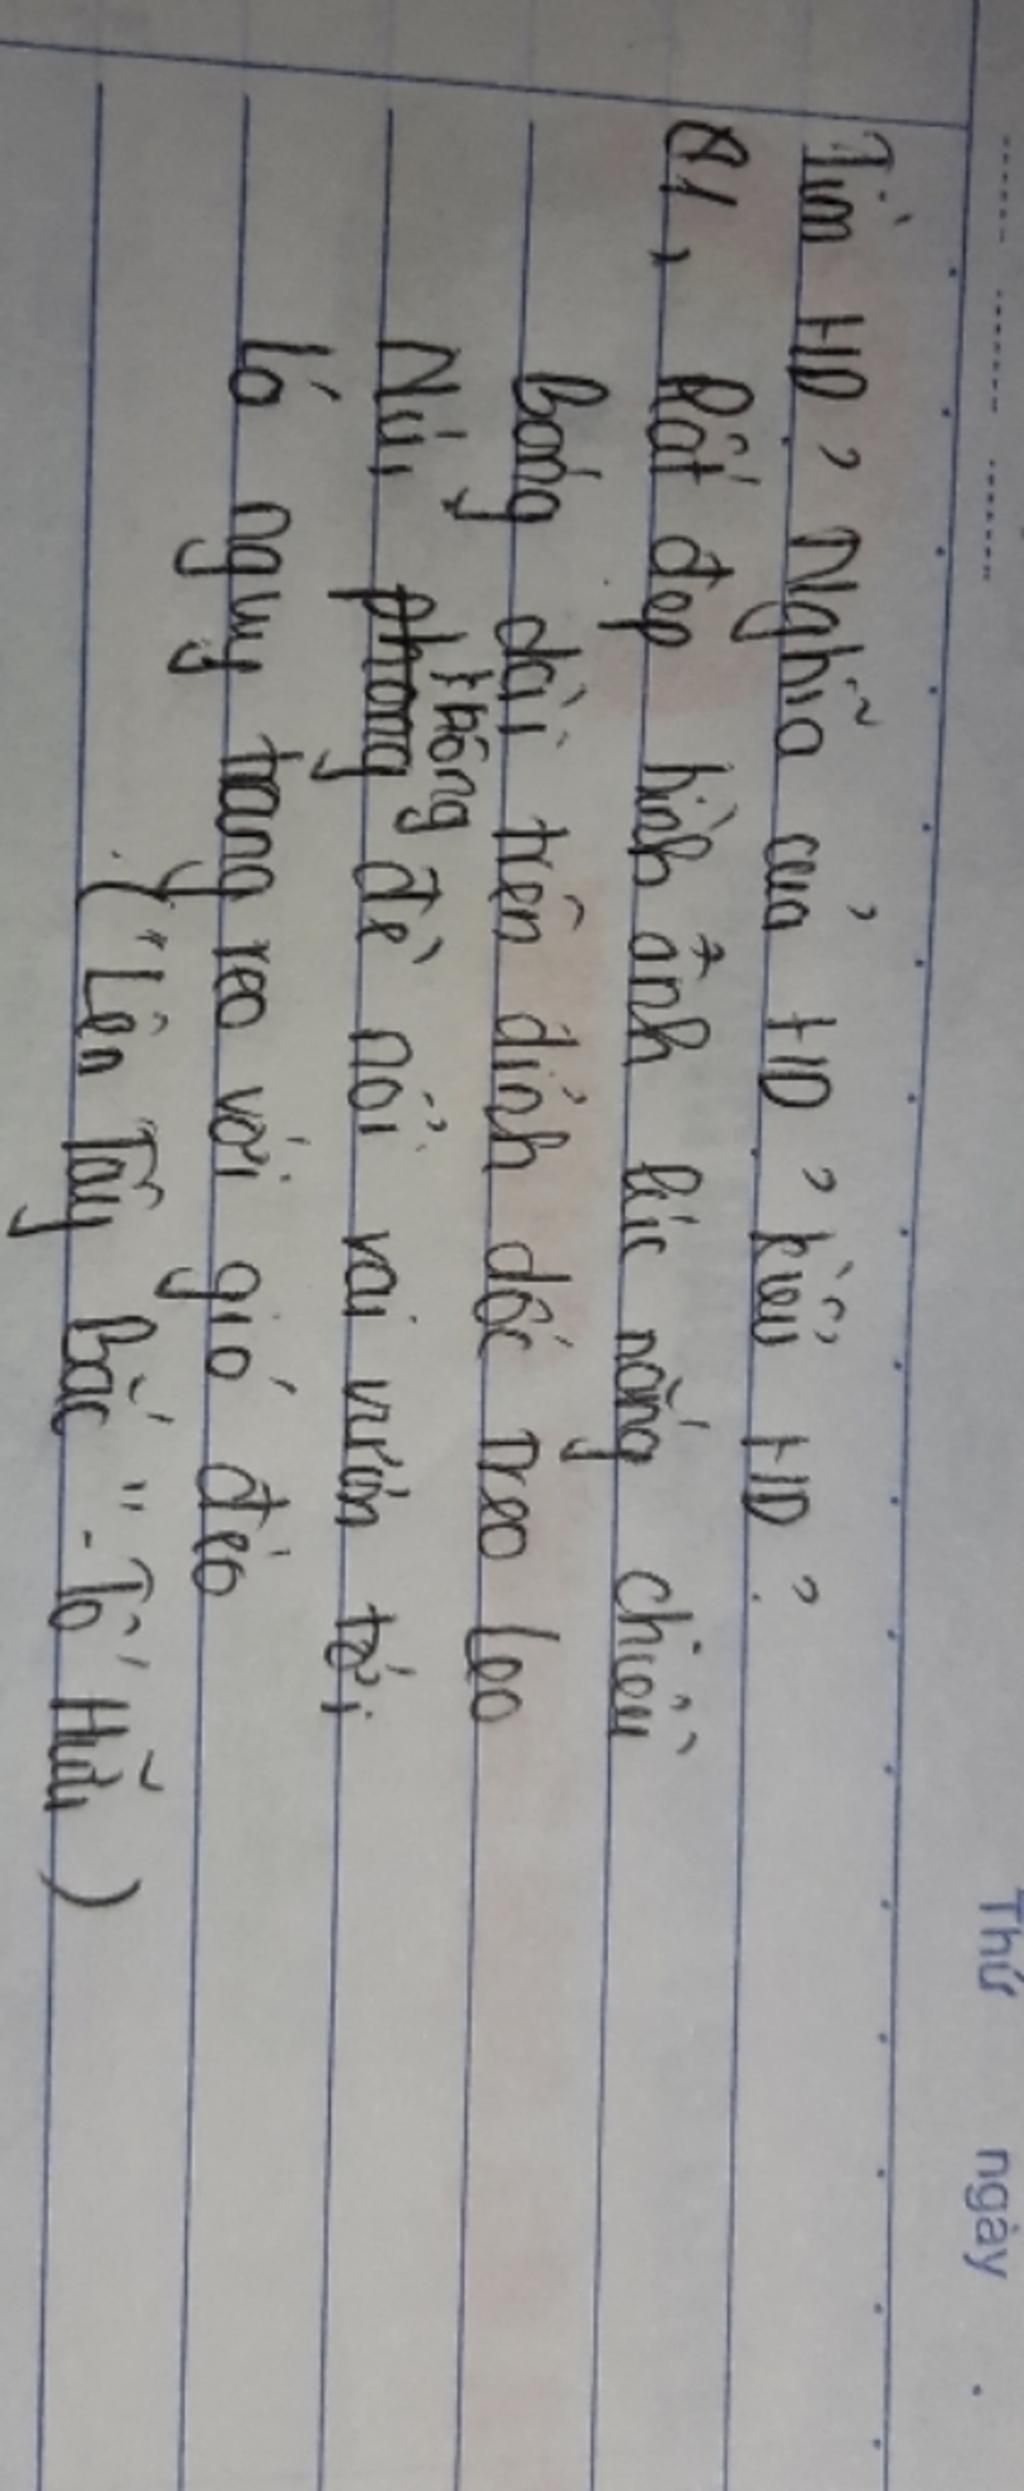 Thứ ngày
Tìm HD? Nghĩa của HD? kiểu HD?
B1, Rất đẹp hình ảnh lúc nắng chiều
Bóng dài trên đỉnh dốc treo leo
Núi không đè nổi vai vươn tới
Lá ngụy trang reo với gió đèo
("Lên Tây Bắc" - Tố Hữu)